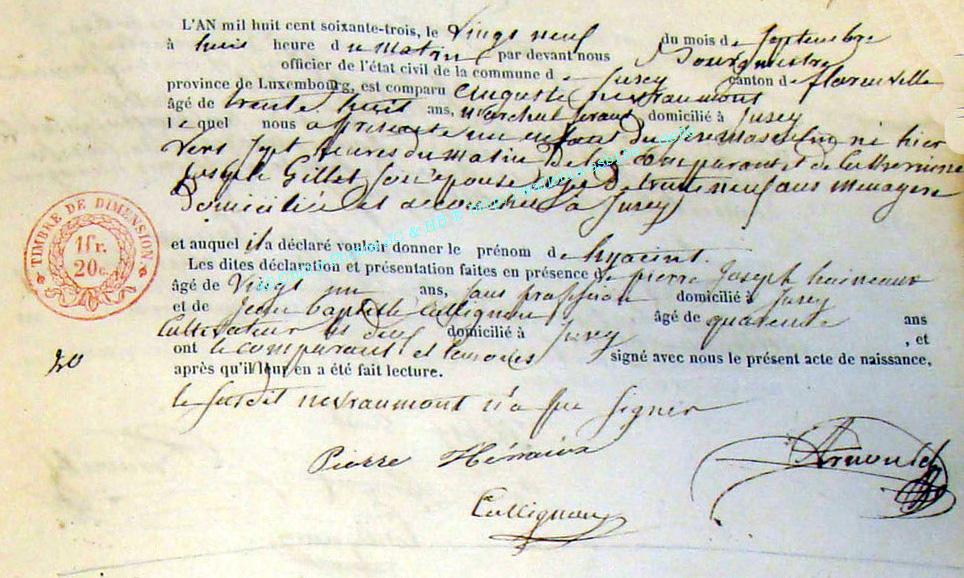 L'AN mil huit cent soixante-trois, le vingt neuf du mois de Septembre
à huit heure du matin par devant nous Bourgmestre
officier de l'état civil de la commune de Jusey canton de florenville
province de Luxembourg, est comparu Auguste Nevraumont
âgé de trente huit ans, marchal ferant domicilié à Jusey
lequel nous a présenté un enfant du sexe masculin né hier
vers sept heures du matin de lui comparant et de Catherinne
Joseph Gillet son épouse agé de trente neuf ans menagere
domicilié et accouchée à Jusey
et auquel il a déclaré vouloir donner le prénom de hyacint.
Les dites déclaration et présentation faites en présence de pierre Joseph
âgé de vingt un ans, sans profession domicilié à Jusey
et de Jean baptiste Collignon âgé de quarente ans
Cultivateur domicilié à Jusey, et
ont le comparant et temoins signé avec nous le présent acte de naissance,
après qu'il leur en a été fait lecture.
le susdit nevraumont n'a su signer
Pierre
Collignon
TIMBRE DE DIMENSION.
1fr.
20c.
20